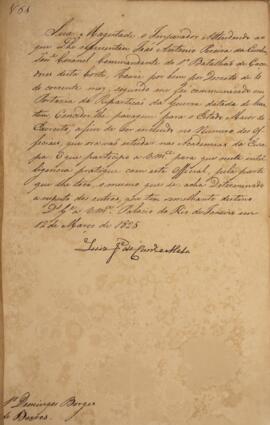 Sua Magestade o Imperador Attendendo ao
que lhe representou João Antonio Pereira da Cunha
Ten.e Coronel Commandante do 1º Batalhão de Caça
dores desta Corte, houve por bem por Decreto de 10
do corrente mez, segundo me foi communicado em
Portaria da Repartição da Guerra datada de hon
tem, Conceder lhe passagem para o Estado Maior do
Exercito, a fim de ser incluido no Numero dos Of
ficiaes, que ora vai estudar nas Academias da Euro
pa. O que participo a V.M.ce para que nesta intel
ligencia pratique com este Official, pela parte
que lhe toca, o mesmo que se acha Determinado
a respeito dos outros, que tem semelhante destino.
D.s G.e a V.M.ce Palacio do Rio de Janeiro em
12 de Março de 1825
Luiz J.e de Carv.o e Mello
S.r Domingos Borges
de Barros